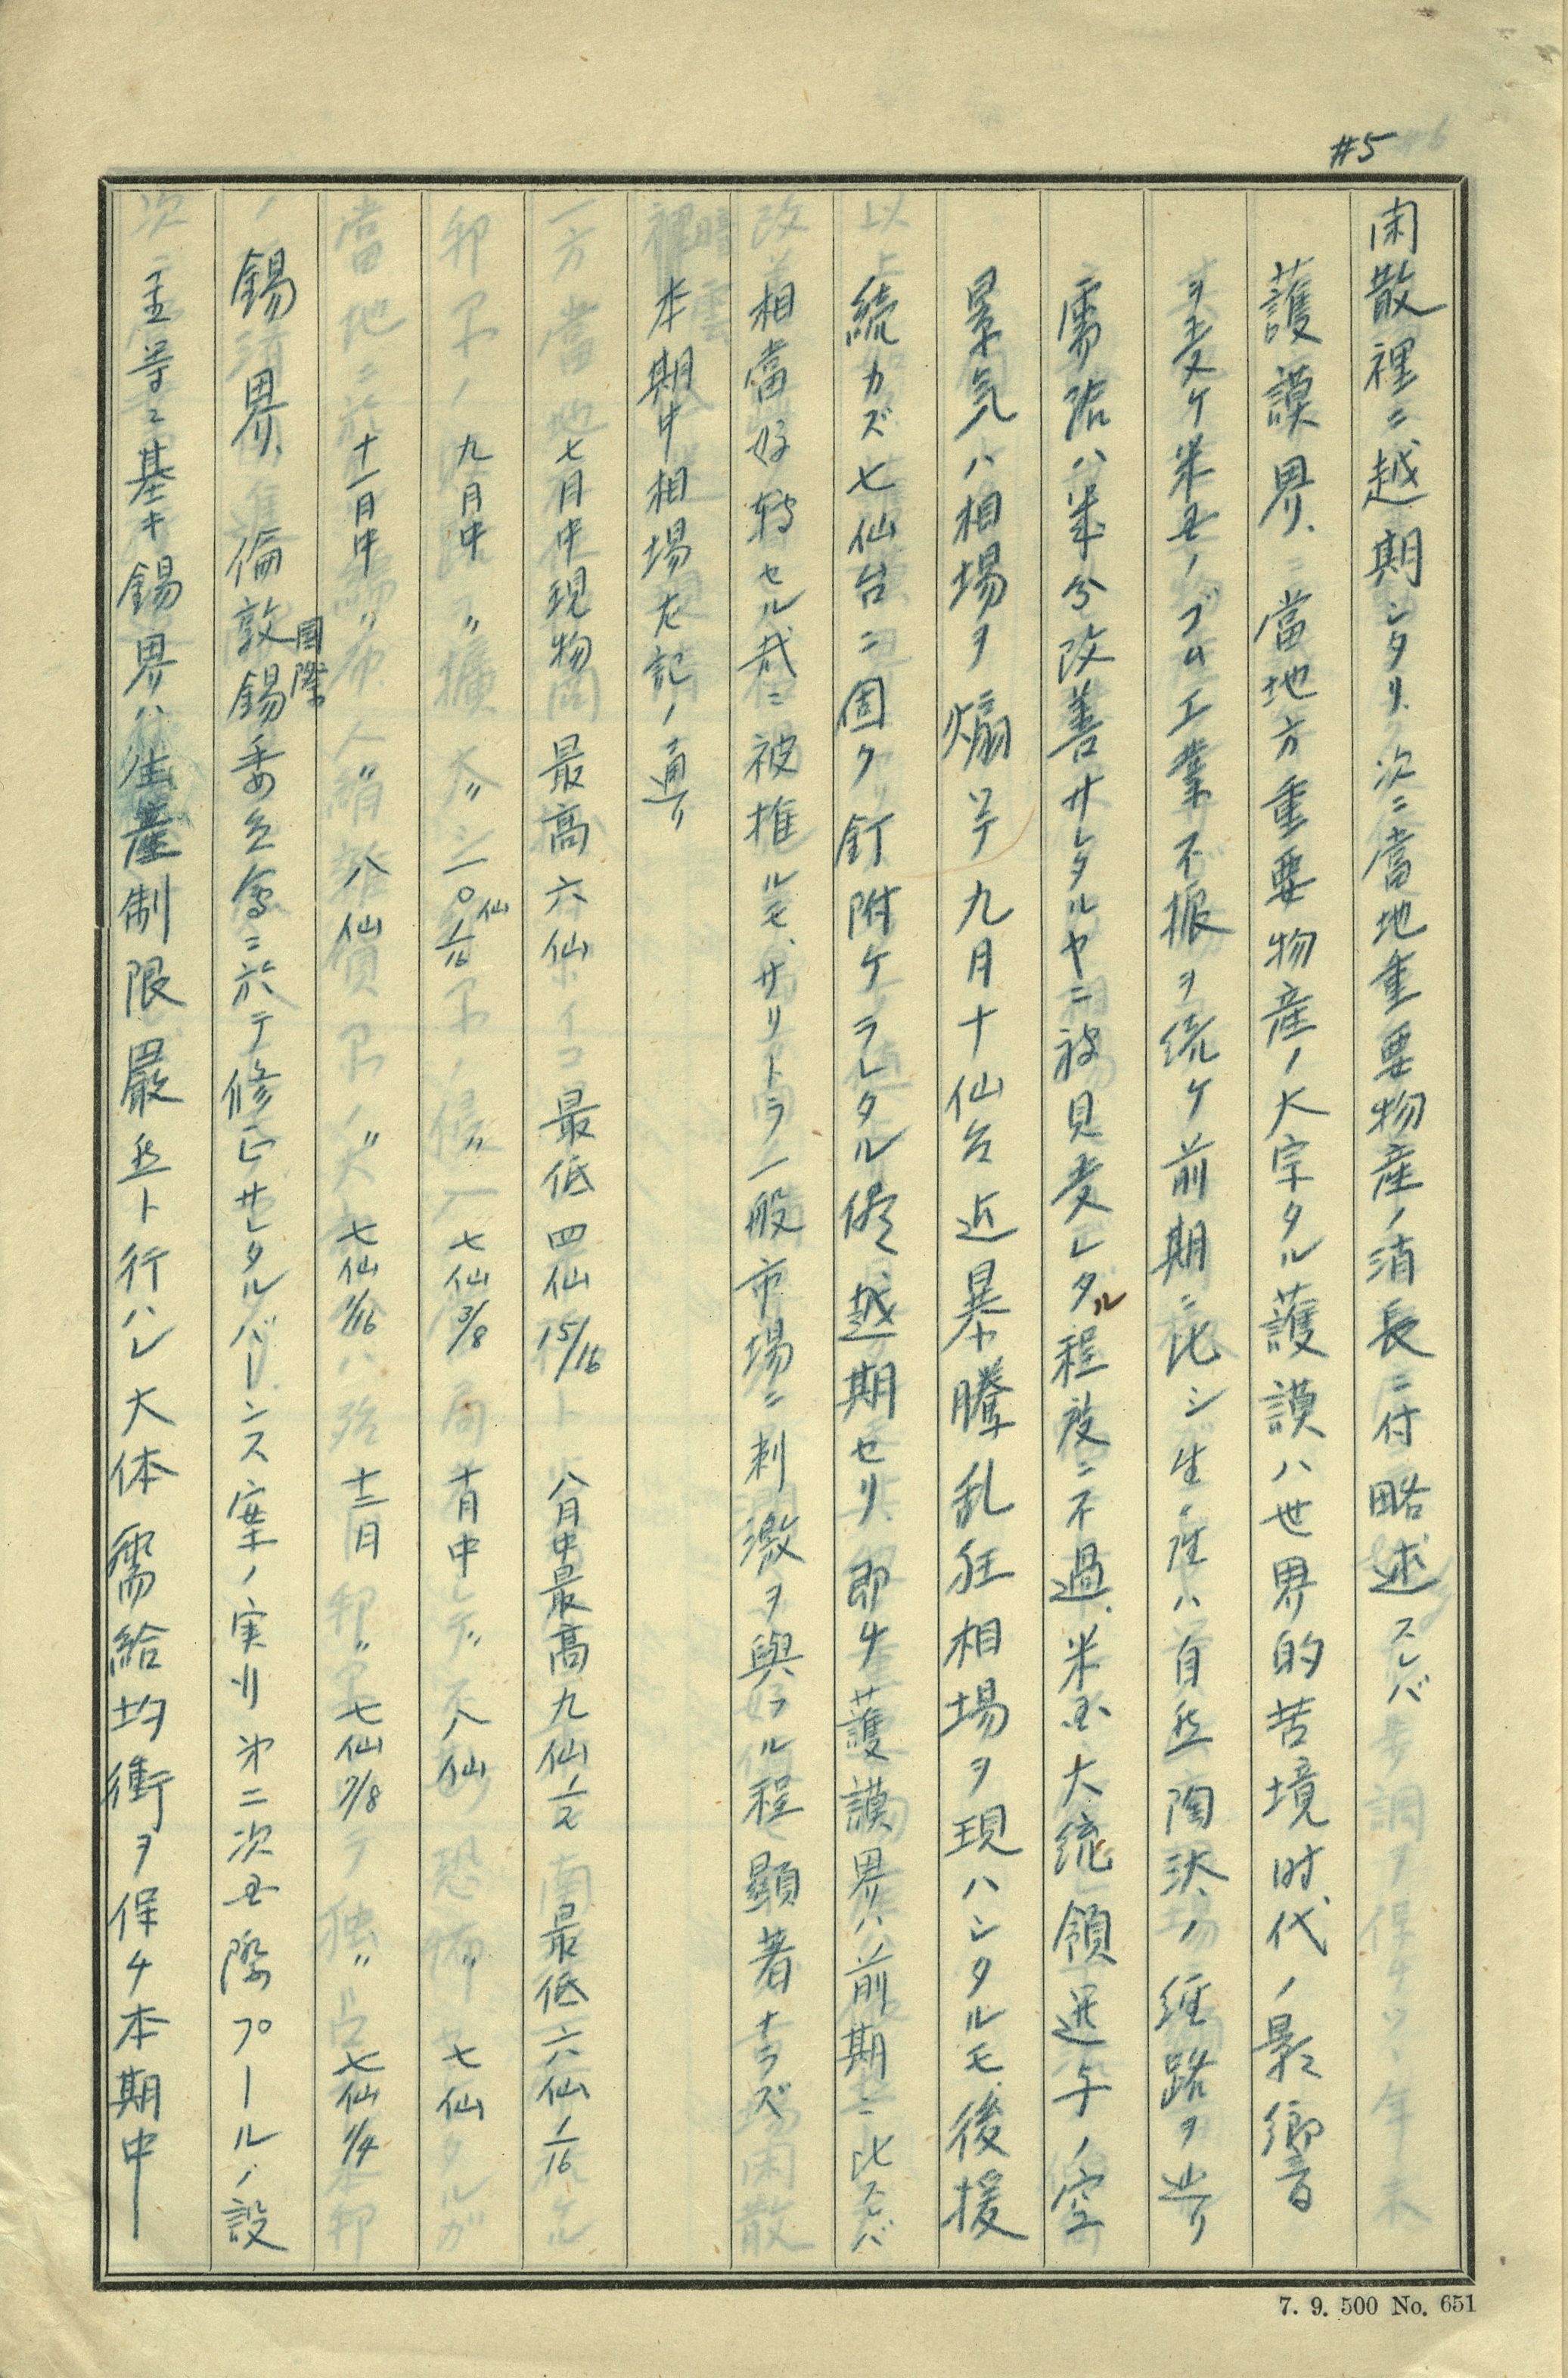 #5
閑散裡ニ越期シタリ、次ニ當地重要物産ノ消長ニ付略述スレバ
護謨界、當地方重要物産ノ大宗タル護謨ハ世界的苦境时代ノ影響
ヲ受ケ米国ノゴム工業不振ヲ続ケ前期ニ比シ生産ハ自然陶汰ノ経路ヲ辿リ
需給ハ幾分改善サレタルヤニ被見受レタル程度ニ不過、米国大統領選挙ノ空
景気ハ相場ヲ煽リテ九月十仙台近暴騰乱狂相場ヲ現ハシタルモ、後援
続カズ七仙台ニ固ク釘附ケラレタル侭、越期セリ、即チ護謨界ハ前期ニ比スレバ
相當好転セル哉ニ被推ルモ、サリトテ一般市場ニ刺激ヲ與フル程顕著ナラズ
本期中相場左記ノ通リ
七月中現物 最高六仙 最低四仙15/16 八月中最高九仙1/2 最低六仙1/16
九月中 〃 〃 一〇仙1/16 〃 七仙3/8 十月中 〃 八仙 〃 七仙
十一月中 〃 〃 八仙 〃 七仙1/16 十二月 〃 七仙7/8 〃 七仙1/4
錫界、倫敦国際錫委員會ニ於テ修正サレタルバーンス案ノ実リ 第二次国際プールノ設
立等ニ基キ錫界ハ生産制限嚴然ト行ハレ大体需給均衝ヲ保チ本期中
7. 9. 500 No. 651